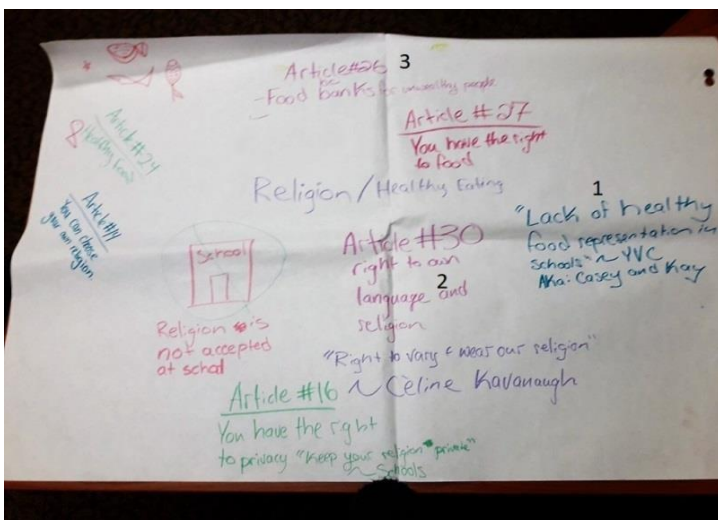 Article #26 3
- Food banks for unwealthy people
Article #27
You have the right
to food
Article #24
Healthy Food
Article #14
You can chose
your own religion.
Religion / Healthy Eating
1
"Lack of healthy
food representation in
schools" ~ YVC
Aka: Casey and Kay
School
Religion is
not accepted
at schol
Article #30
right to own
language and 2
religion
"Right to vary & wear our religion"
~ Celine Kavanaugh
Article #16
You have the right
to privacy "Keep your religion private"
~ Schools